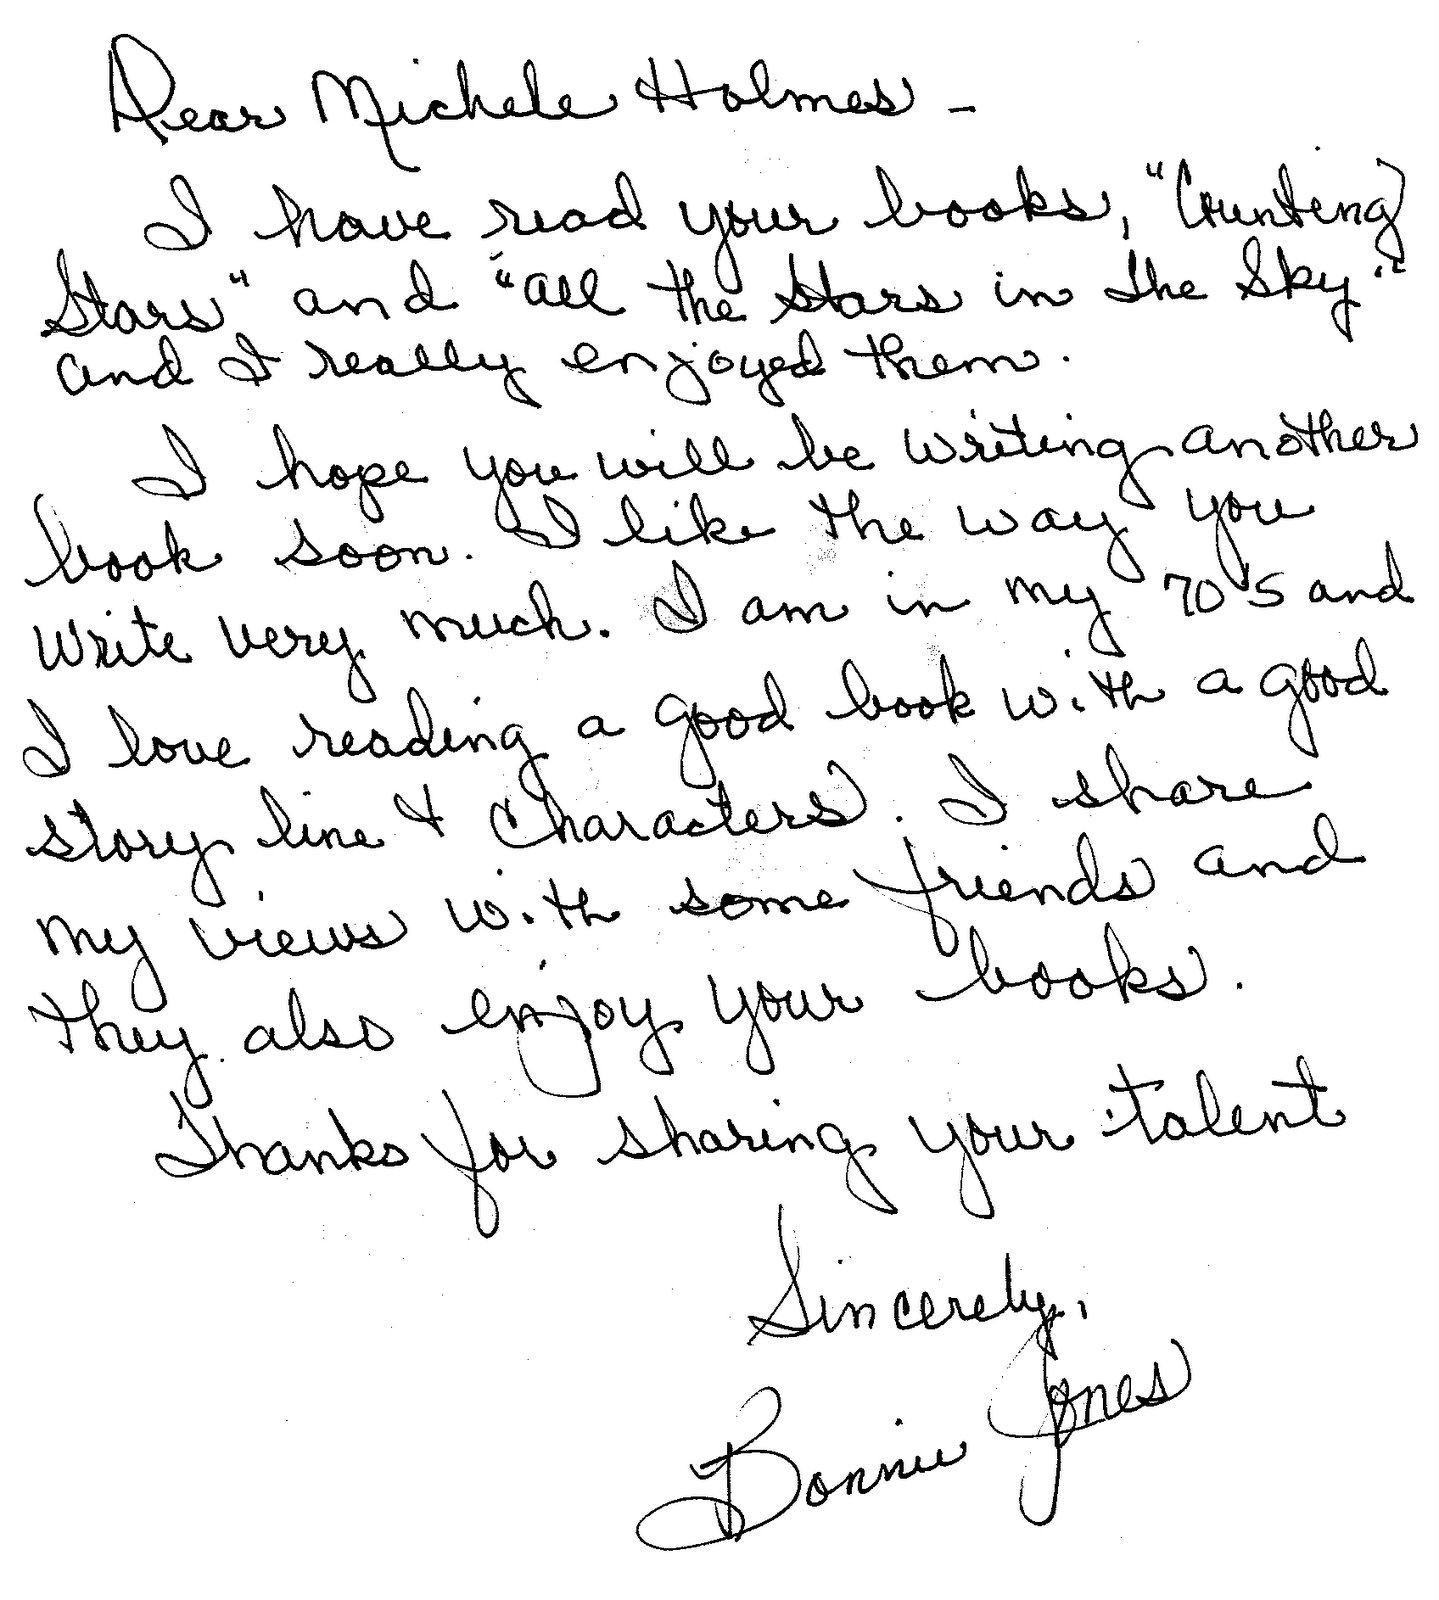 Dear Michele Holmes -
I have read your books, "Counting
Stars" and "All the Stars in the Sky."
and I really enjoyed them.
I hope you will be writing another
book soon. I like the way you
write very much. I am in my 70's and
I love reading a good book with a good
story line & characters. I share
my views with some friends and
they also enjoy your books.
Thanks for sharing your talent
Sincerely,
Bonnie Jones